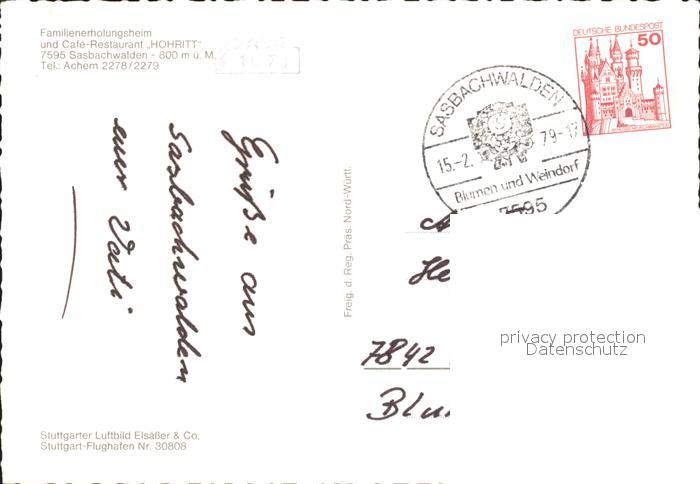 Familienerholungsheim
und Cafe-Restaurant „HOHRITT"
7595 Sasbachwalden - 800 m ü. M.
Tel.: Achern 2278/2279
DEUTSCHE BUNDESPOST
50
SASBACHWALDEN
15.-2. 79-17
Blumen und Weindorf
7595
Grüße aus
Sasbachwalden
euer Vati
Freig. d. Reg. Präs. Nord-Württ.
He
7842
Blu
privacy protection
Datenschutz
Stuttgarter Luftbild Elsäßer & Co.
Stuttgart-Flughafen Nr. 30808